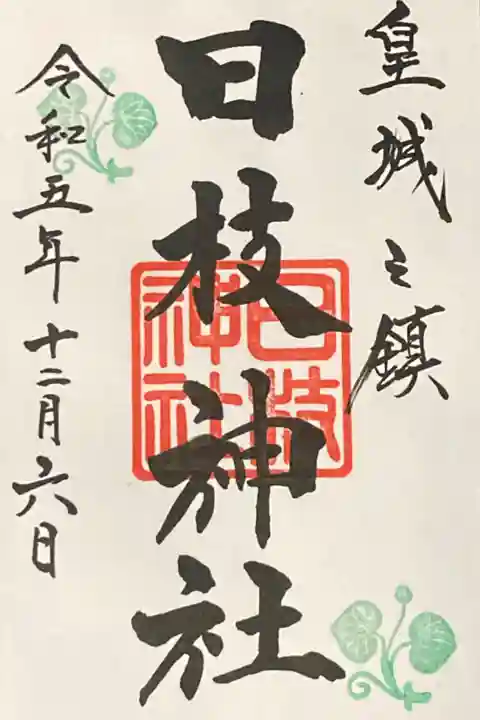 皇城之鎮
日枝神社
日枝神社
令和五年十二月六日